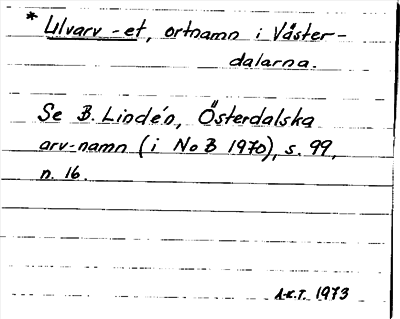 * Ulvarv -et, ortnamn i Väster-
dalarna.
Se B. Lindén, Österdalska
arv-namn (i NoB 1970), s. 99,
n. 16.
A.K.T. 1973